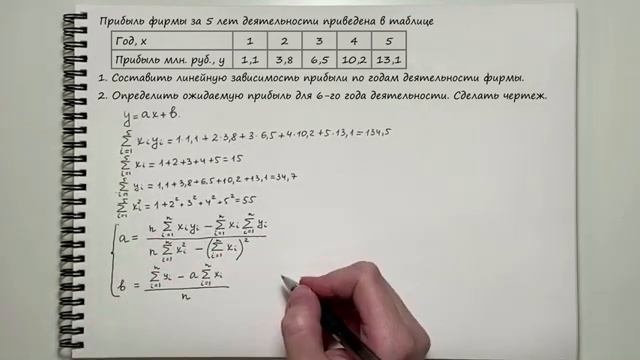 Прибыль фирмы за 5 лет деятельности приведена в таблице
Год, х 1 2 3 4 5
Прибыль млн. руб., у 1,1 3,8 6,5 10,2 13,1
1. Составить линейную зависимость прибыли по годам деятельности фирмы.
2. Определить ожидаемую прибыль для 6-го года деятельности. Сделать чертеж.
y = ax + b.
∑_{i=1}^{5} x_i y_i = 1·1,1 + 2·3,8 + 3·6,5 + 4·10,2 + 5·13,1 = 134,5
∑_{i=1}^{5} x_i = 1+2+3+4+5 = 15
∑_{i=1}^{5} y_i = 1,1+3,8+6,5+10,2+13,1 = 34,7
∑_{i=1}^{5} x_i^2 = 1+2^2+3^2+4^2+5^2 = 55
a = (n ∑_{i=1}^{n} x_i y_i − ∑_{i=1}^{n} x_i ∑_{i=1}^{n} y_i) / (n ∑_{i=1}^{n} x_i^2 − (∑_{i=1}^{n} x_i)^2)
b = (∑_{i=1}^{n} y_i − a ∑_{i=1}^{n} x_i) / n